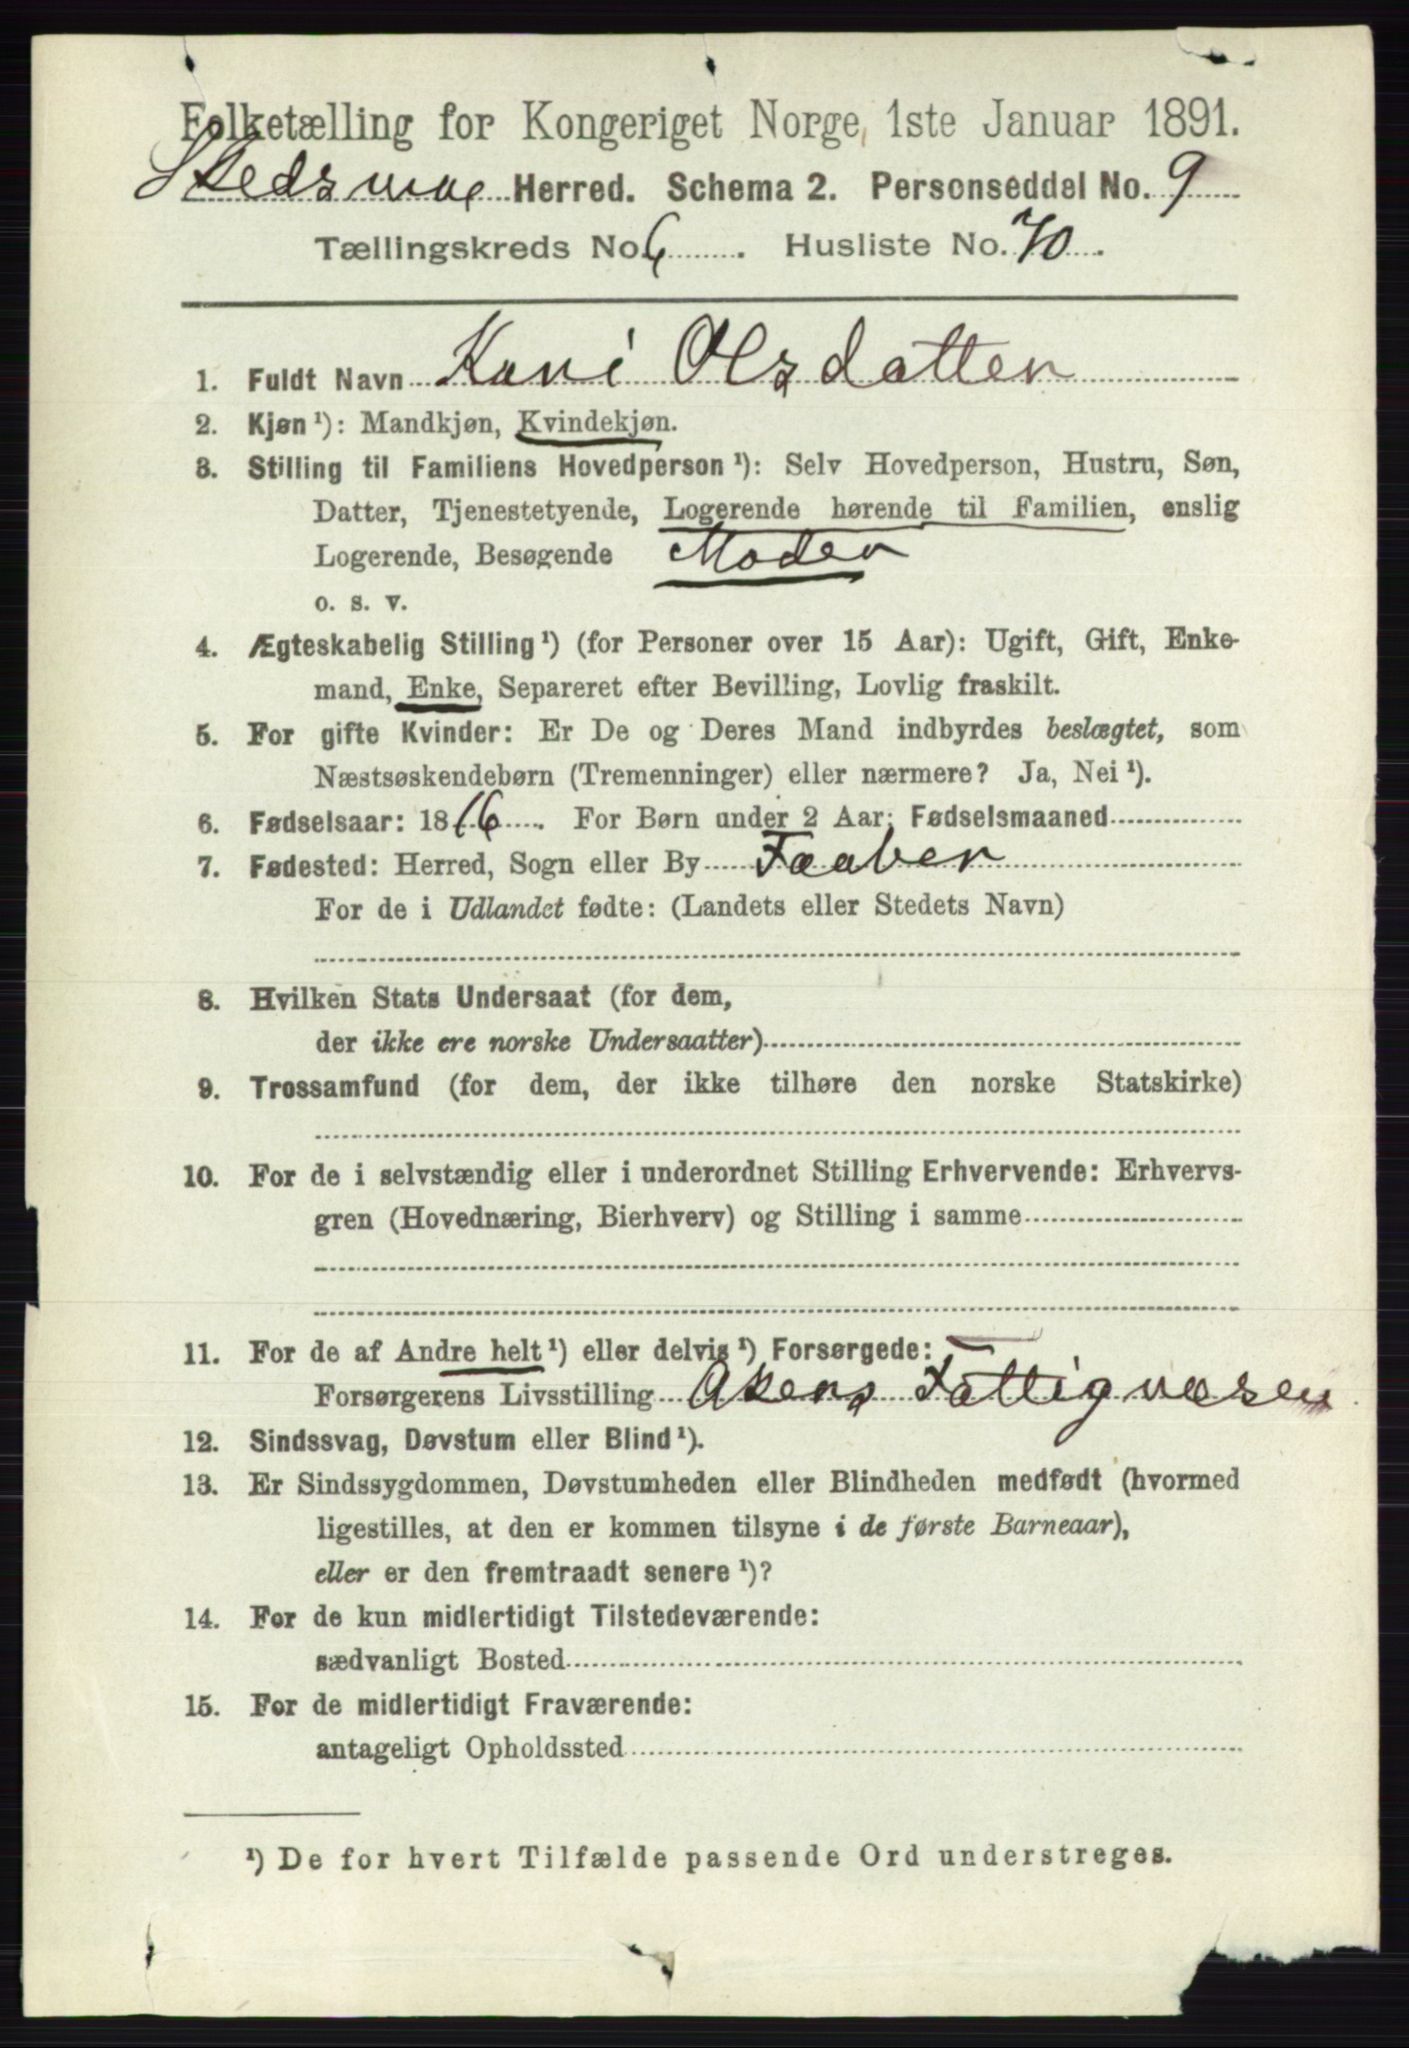 Folketælling for Kongeriget Norge, 1ste Januar 1891.
Skedsmoe Herred. Schema 2. Personseddel No. 9
Tællingskreds No. 6. Husliste No. 70.
1. Fuldt Navn Kari Olsdatter
2. Kjøn ¹): Mandkjøn, Kvindekjøn.
3. Stilling til Familiens Hovedperson ¹): Selv Hovedperson, Hustru, Søn,
Datter, Tjenestetyende, Logerende hørende til Familien, enslig
Logerende, Besøgende Moder
o. s. v.
4. Ægteskabelig Stilling ¹) (for Personer over 15 Aar): Ugift, Gift, Enke-
mand, Enke, Separeret efter Bevilling, Lovlig fraskilt.
5. For gifte Kvinder: Er De og Deres Mand indbyrdes beslægtet, som
Næstsøskendebørn (Tremenninger) eller nærmere? Ja, Nei ¹).
6. Fødselsaar: 1816. For Børn under 2 Aar: Fødselsmaaned
7. Fødested: Herred, Sogn eller By Faaber
For de i Udlandet fødte: (Landets eller Stedets Navn)
8. Hvilken Stats Undersaat (for dem,
der ikke ere norske Undersaatter)
9. Trossamfund (for dem, der ikke tilhøre den norske Statskirke)
10. For de i selvstændig eller i underordnet Stilling Erhvervende: Erhvervs-
gren (Hovednæring, Bierhverv) og Stilling i samme
11. For de af Andre helt ¹) eller delvis ¹) Forsørgede:
Forsørgerens Livsstilling Akers Fattigvæsen
12. Sindssvag, Døvstum eller Blind ¹).
13. Er Sindssygdommen, Døvstumheden eller Blindheden medfødt (hvormed
ligestilles, at den er kommen tilsyne i de første Barneaar),
eller er den fremtraadt senere ¹)?
14. For de kun midlertidigt Tilstedeværende:
sædvanligt Bosted
15. For de midlertidigt Fraværende:
antageligt Opholdssted
¹) De for hvert Tilfælde passende Ord understreges.